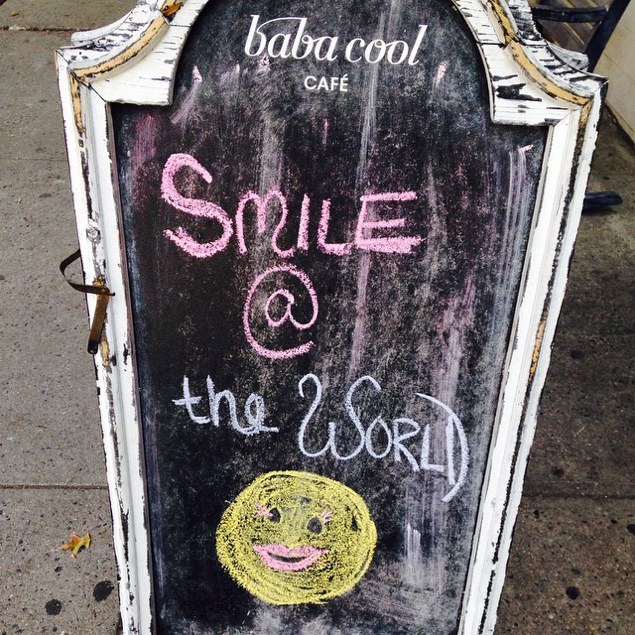 baba cool
CAFÉ
SMILE
@
the WORLD